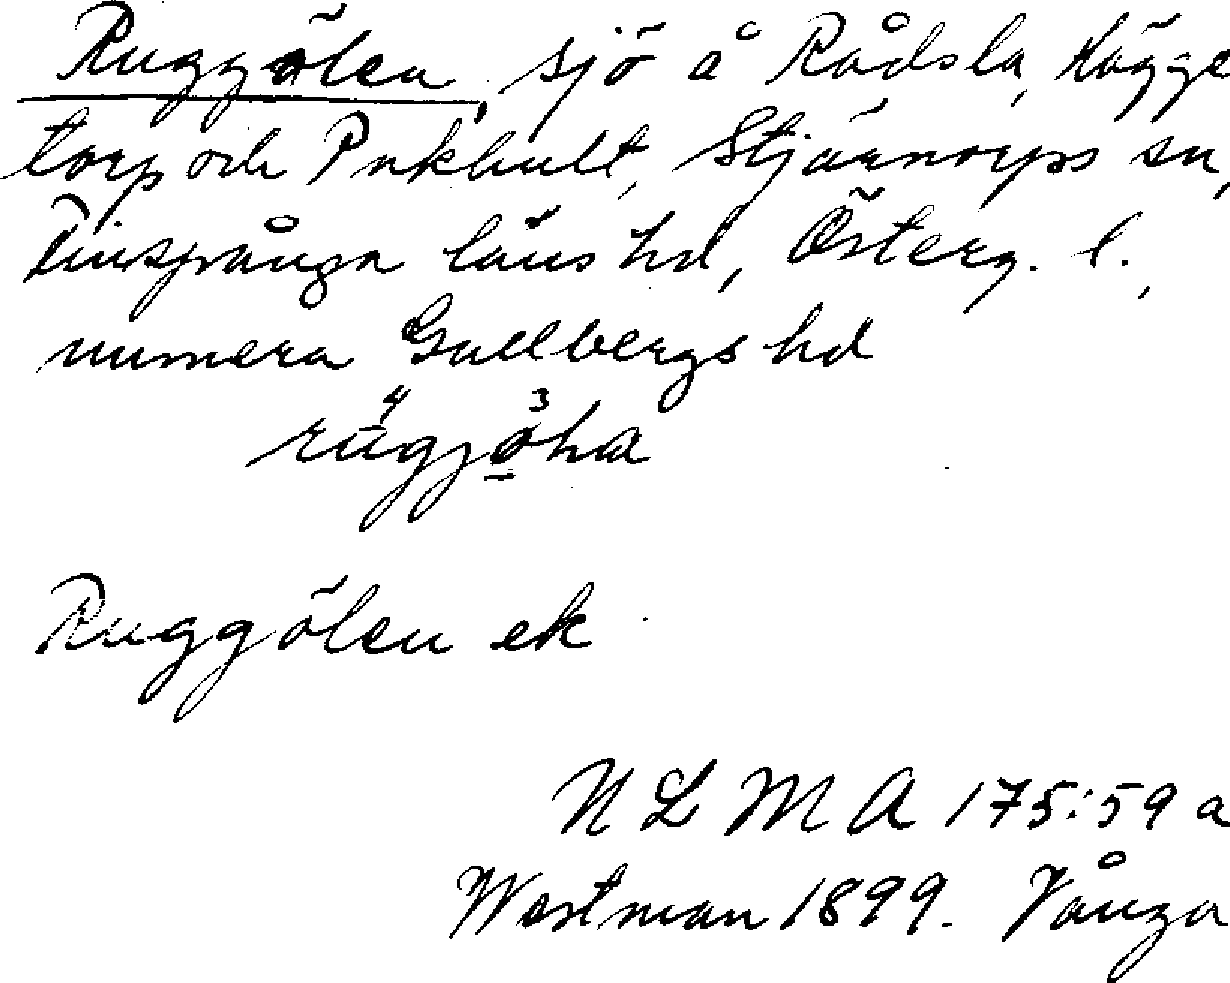 Ruggölen, sjö å Rådsla, Kägge
torp och Pukhult, Stjärnorps sn,
Finspånga läns hd, Österg. l.,
numera Gullbergs hd
Ruggölen ek
N L M A 175:59 a
Westman 1899. Vånga